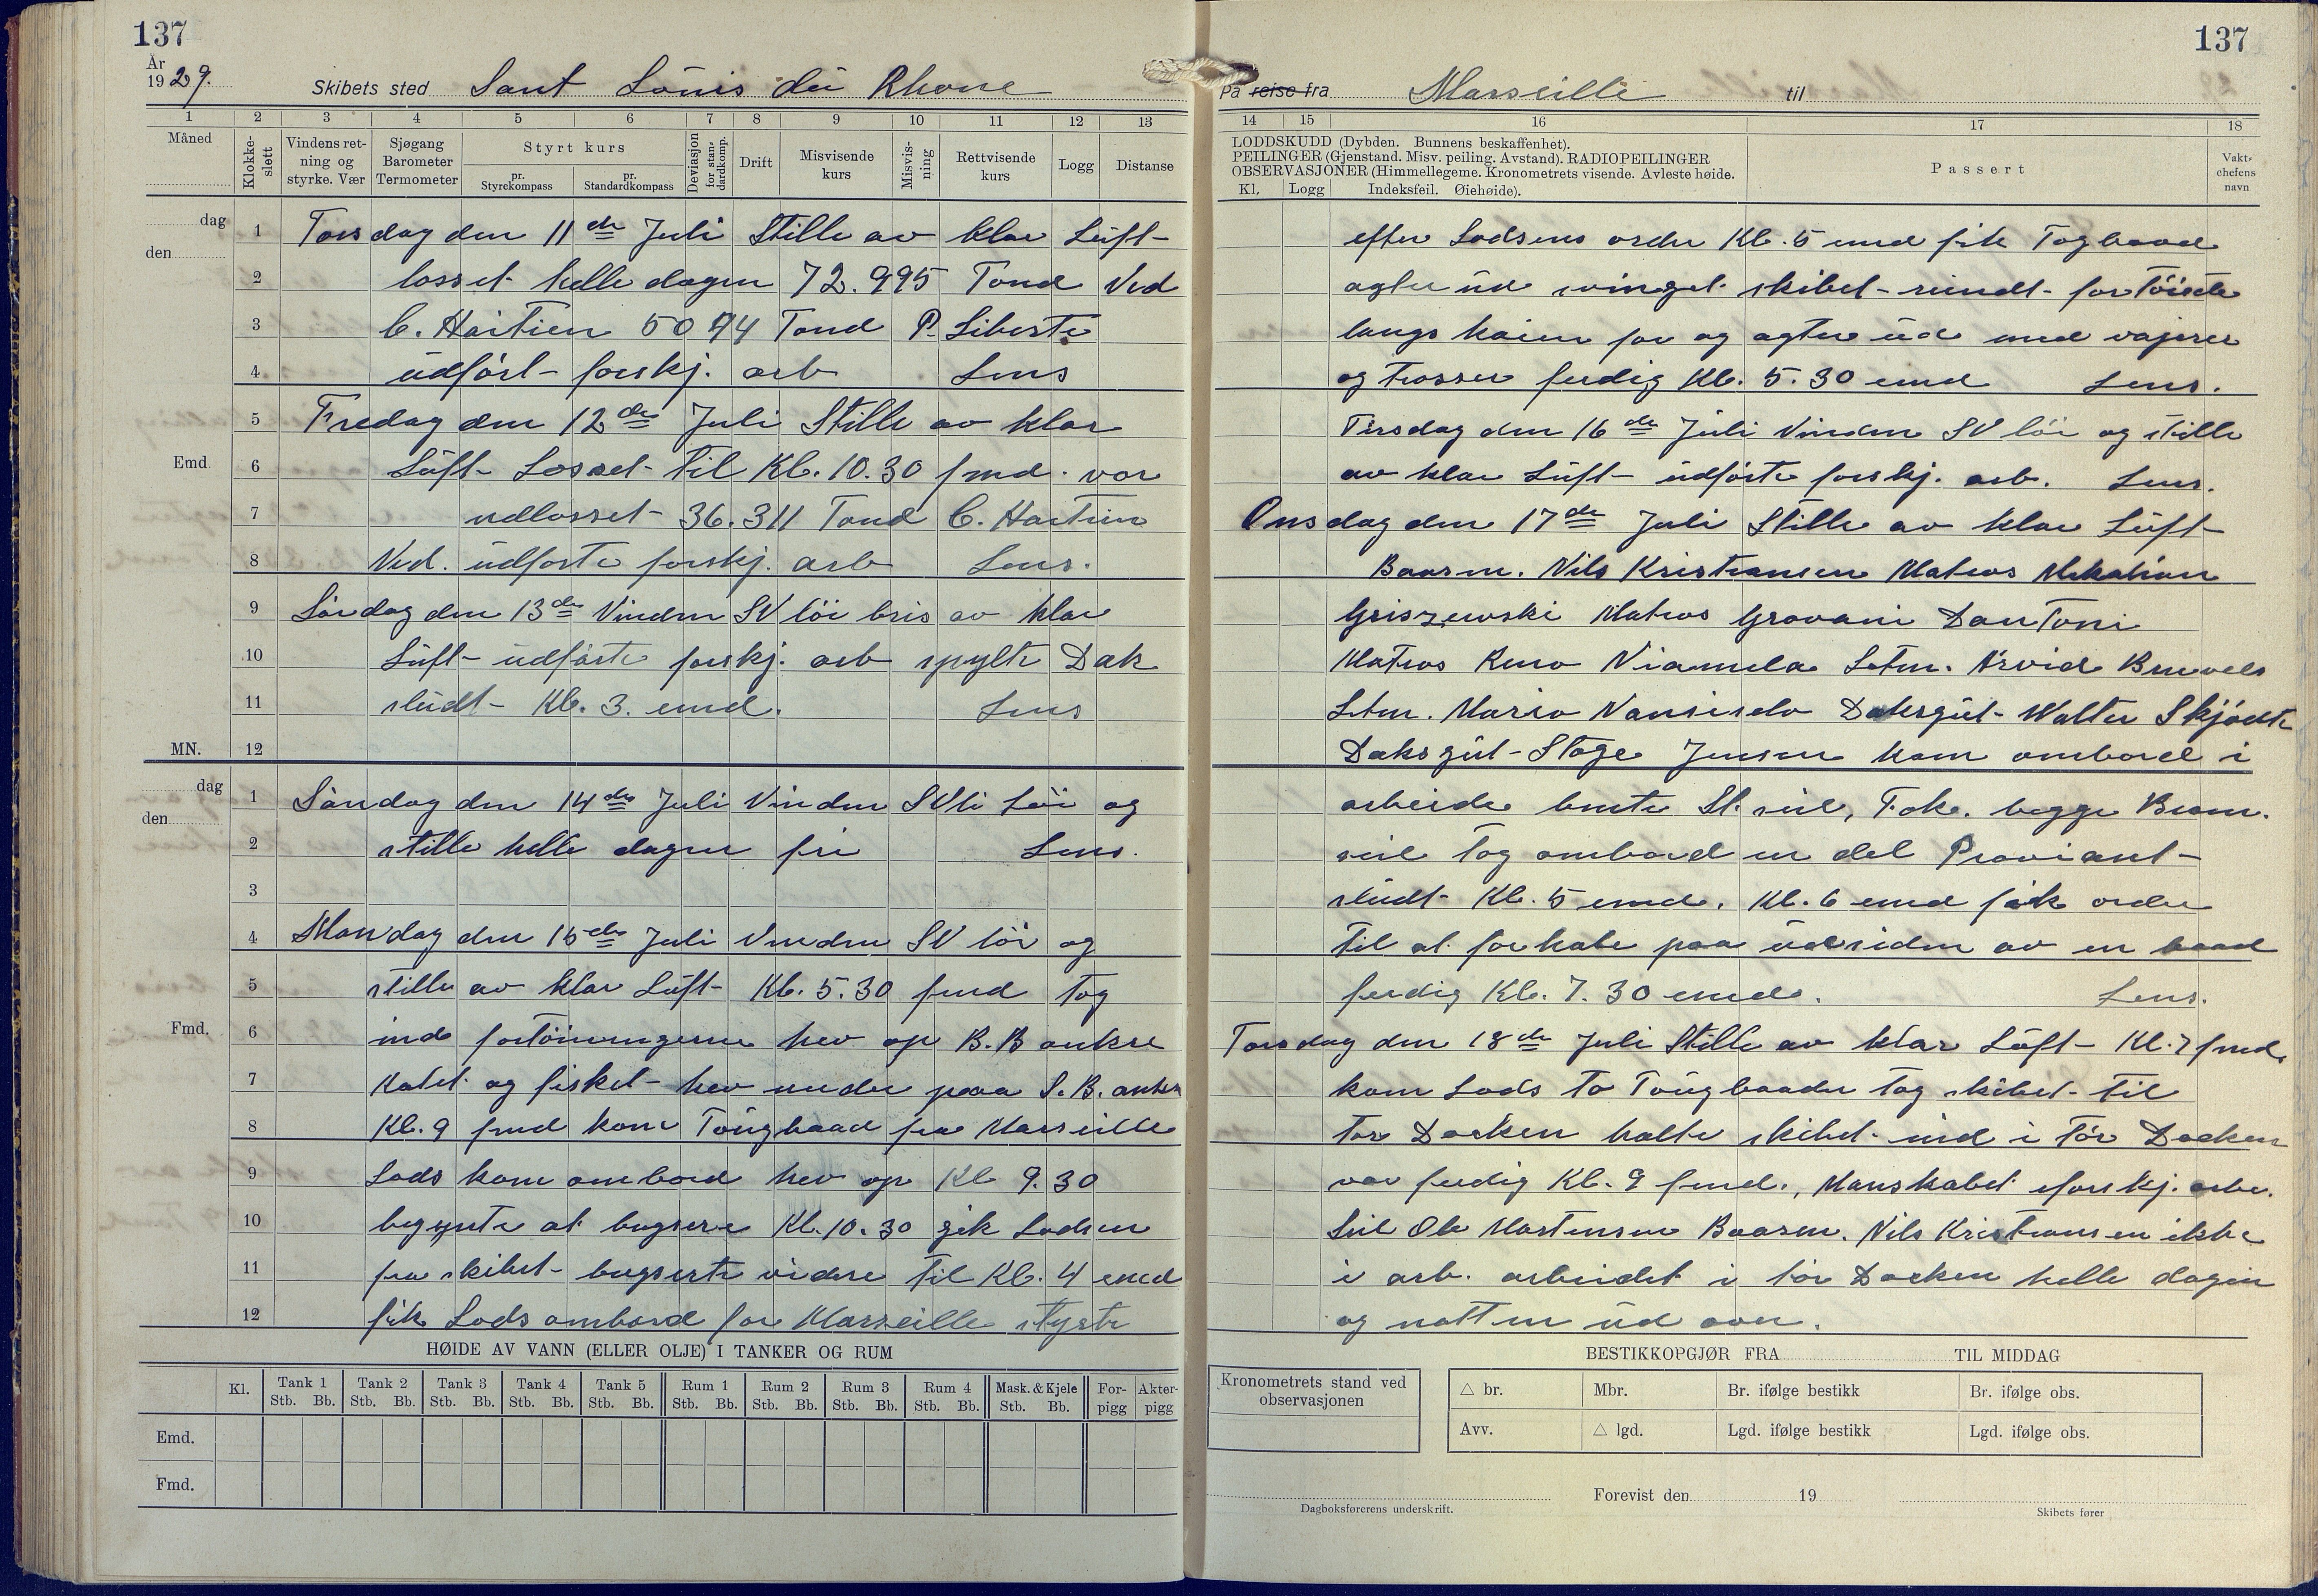 137
137
År
1929.
Skibets sted Sant Lŏuis dŭ Rhone
På reise fra Marseille til
1 2 3 4 5 6 7 8 9 10 11 12 13
Måned
Klokke-slett
Vindens ret-
ning og
styrke. Vær
Sjøgang
Barometer
Termometer
Styrt kurs
pr.
Styrekompass
pr.
Standardkompass
Deviasjon
for stan-
dardkomp.
Drift
Misvisende
kurs
Misvis-
ning
Rettvisende
kurs
Logg
Distanse
dag
den
Emd.
MN.
1 Torsdag den 11de Juli Stille av klar Lŭft
2 losset helle dagen 72.995 Tond Ved
3 C. Haitien 5074 Tond P. Liberte
4 ŭdført forskj. arb Lens
5 Fredag den 12de Juli Stille av klar
6 Lŭft Losset til Kl. 10.30 fmd. var
7 udlosset 36.311 Tond C. Haitien
8 Ved. ŭdførte forskj. arb Lens.
9 Lørdag den 13de Vinden SV løi bris av klar
10 Lŭft ŭdførte forskj. arb spylte Dæk
11 slŭdt Kl. 3. emd. Lens
12
dag
den
Fmd.
1 Søndag den 14de Juli Vinden SVli løi og
2 stille helle dagen fri Lens.
3
4 Mandag den 15de Juli Vinden SV løi og
5 stille av klar Lŭft Kl. 5.30 fmd tog
6 ind fortöiningerne hev op B.B anker
7 Katet og fisket hev under paa S.B. anker
8 Kl. 9 fmd kom Tŏugbaad fra Marseille
9 Lods kom ombord hev op Kl 9.30
10 begynte at bugsere Kl. 10.30 gik Lodsen
11 fra skibet bugserte videre til Kl. 4 emd
12 fik Lods ombord for Marseille styrte
HØIDE AV VANN (ELLER OLJE) I TANKER OG RUM
Kl. Tank 1 Tank 2 Tank 3 Tank 4 Tank 5 Rum 1 Rum 2 Rum 3 Rum 4 Mask. & Kjele For-pigg Akter-pigg
Stb. Bb. Stb. Bb. Stb. Bb. Stb. Bb. Stb. Bb. Stb. Bb. Stb. Bb. Stb. Bb. Stb. Bb. Stb. Bb.
Emd.
Fmd.
14 15 16 17 18
LODDSKUDD (Dybden. Bunnens beskaffenhet).
PEILINGER (Gjenstand. Misv. peiling. Avstand). RADIOPEILINGER
OBSERVASJONER (Himmellegeme. Kronometrets visende. Avleste høide.
Kl. Logg Indeksfeil. Øiehøide).
Passert
Vakt-
chefens
navn
efter Lodsens order Kl. 5 emd fik Togbaad
agter ŭd svinget skibet rŭndt fortöiede
langs kaien for og agter ŭd med vajerer
og Trosser ferdig Kl. 5.30 emd Lens.
Tirsdag den 16de Jŭli Vinden SV løi og stille
av klar Lŭft ŭdførte forskj. arb. Lens.
Onsdag den 17de Juli Stille av klar Lŭft
Baasm. Nils Kristiansen Matros
Griszewski Matros Giovani DanToni
Matros Viamela Letm. Arvid
Letm. Mario Dæksgŭt Walter Skjødte
Dæksgŭt Stage Jensen kom ombord i
arbeide bente St. seil, Fok. begge Bram.
seil tog ombord en del Proviant
slŭdt Kl. 5 emd. Kl. 6 emd fik order
til at forhale paa ŭdsiden av en baad
ferdig Kl. 7.30 emd. Lens.
Torsdag den 18de Juli Stille av klar Lŭft Kl. 7 fmd.
kom Lods to Tŏugbaader tog skibet til
Tør Docken halte skibet ind i Tör Docken
var ferdig Kl. 9 fmd., Manskabet forskj. arb.
Ole Martensen Baasm. Nils Kristiansen ikke
i arb. arbeidet i tör Docken helle dagen
og natten ŭd over.
BESTIKKOPGJØR FRA TIL MIDDAG
Kronometrets stand ved
observasjonen
△ br. Mbr. Br. ifølge bestikk Br. ifølge obs.
Avv. △ lgd. Lgd. ifølge bestikk Lgd. ifølge obs.
Forevist den 19
Dagboksførerens underskrift.
Skibets fører